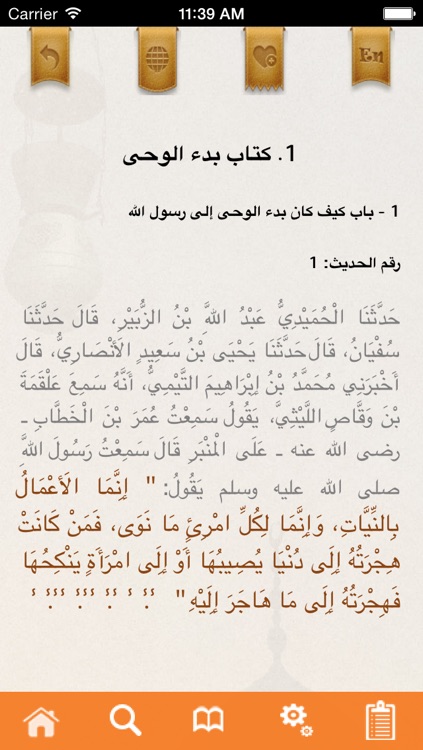 Carrier 11:39 AM
En
1. كتاب بدء الوحى
1 - باب كيف كان بدء الوحى إلى رسول الله
رقم الحديث: 1
حَدَّثَنَا الْحُمَيْدِيُّ عَبْدُ اللَّهِ بْنُ الزُّبَيْرِ، قَالَ حَدَّثَنَا
سُفْيَانُ، قَالَ حَدَّثَنَا يَحْيَى بْنُ سَعِيدٍ الأَنْصَارِيُّ، قَالَ
أَخْبَرَنِي مُحَمَّدُ بْنُ إِبْرَاهِيمَ التَّيْمِيُّ، أَنَّهُ سَمِعَ عَلْقَمَةَ
بْنَ وَقَّاصٍ اللَّيْثِيَّ، يَقُولُ سَمِعْتُ عُمَرَ بْنَ الْخَطَّابِ ـ
رضى الله عنه ـ عَلَى الْمِنْبَرِ قَالَ سَمِعْتُ رَسُولَ اللَّهِ
صلى الله عليه وسلم يَقُولُ: " إِنَّمَا الأَعْمَالُ
بِالنِّيَّاتِ، وَإِنَّمَا لِكُلِّ امْرِئٍ مَا نَوَى، فَمَنْ كَانَتْ
هِجْرَتُهُ إِلَى دُنْيَا يُصِيبُهَا أَوْ إِلَى امْرَأَةٍ يَنْكِحُهَا
فَهِجْرَتُهُ إِلَى مَا هَاجَرَ إِلَيْهِ "